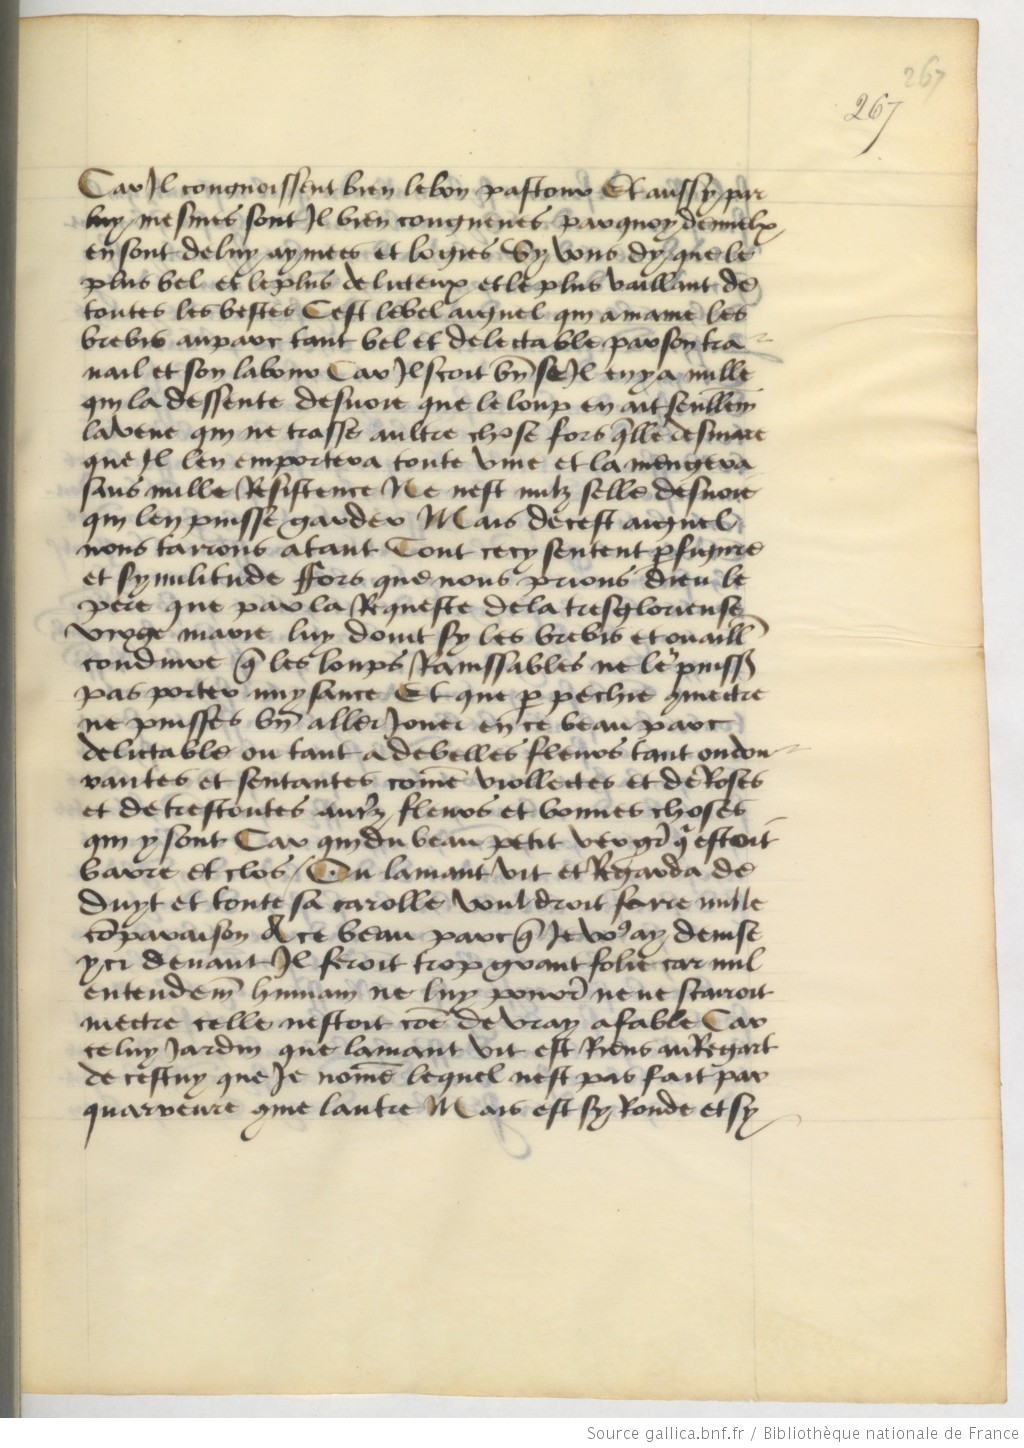 267
267
Car Il congnoissent bien le bon pastour Et aussy par
luy mesmes sont Il bien congneues par quoy de mielx
en sont de luy aymees et logies Sy vous dy que le
plus bel et le plus delicteux et le plus vaillant de
toutes les bestes Cest le bel aignel qui amaine les
brebis au parc tant bel et delectable par son tra
vail et son labour Car Il scoit bn̄ se Il en y a nulle
qui la dessente desvoie que le loup en ait seullem̄
la veue qui ne trasse aultre chose fors q̄lle desvoie
que Il len emportera toute vive et la mengera
sans nulle Resistence Ne nest nulz selle desvoie
qui len puisse garder Mais de cest aignel
nous tarrons atant Tout cecy sentent p figure
et symilitude ffors que nous prions dieu le
pere que par la Requeste de la tresglorieuse
virge marie luy doint sy les brebis et ouaill
conduire q̄ les loups Ravissables ne le puiss
pas porter nuysance Et que p pechie 9mectre
ne puisses bn̄ aller Jouer en ce beau parc
delictable ou tant a de belles fleurs tant oudou
rantes et sentantes com̄e viollectes et de Roses
et de trestoutes autz fleurs et bonnes choses
qui y sont Car qui du beau petit vergr̄ q̄ estoit
barre et clos / Ou lamant vit et Regarda de
duyt et toute sa carolle vouldroit faire nulle
cōparaison A ce beau parc q̄ Je vo9 ay devise
ycy devant Il feroit trop grant folie car nul
entendem̄ humain ne luy pourr̄ ne ne scairoit
mectre celle nestoit cōe de vray a fable Car
celuy Jardin que lamant vit est Riens au Regart
de cestuy que Je nom̄e lequel nest pas fait par
quarreure 9me lautre Mais est sy Ronde et sy
Source gallica.bnf.fr / Bibliothèque nationale de France